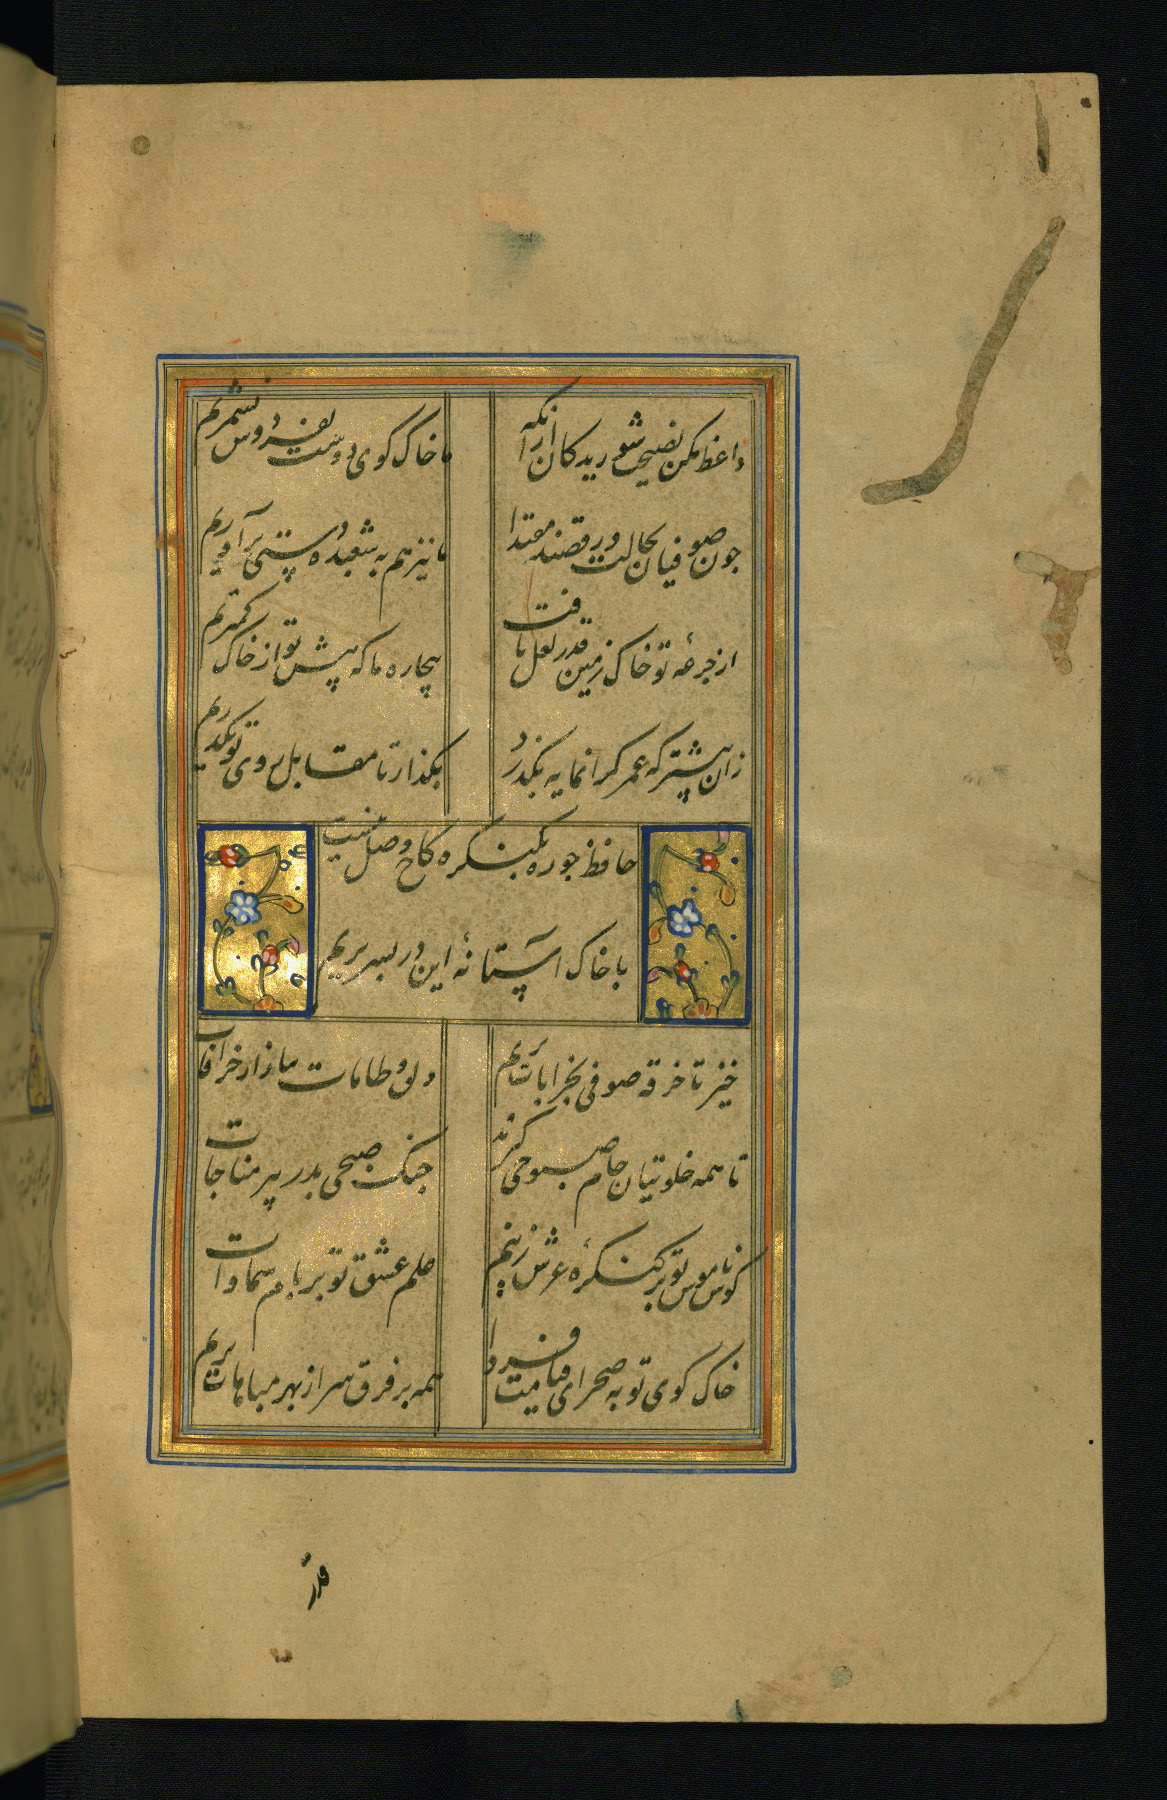 واعظ مکن نصیحت شوریدکان از انکه
ما خاک کوی دوست بفردوس ننکریم
چون صوفیان بحالت و رقصند مقتدا
ما نیز هم به شعبده دستی برآوریم
از جرعه تو خاک زمین قدر لعل یافت
بیچاره ما که پیش تو از خاک کمتریم
زان پیشتر که عمر کرانمایه بکذرد
بکذار تا مقابل روی تو بکذریم
حافظ چو ره بکنکره کاخ وصل نیست
با خاک آستانهٔ این در بسر بریم
خیز تا خرقه صوفی بخرابات بریم
دلق و طامات ببازار خرافات
تا همه خلوتیان جام صبوحی کیرند
چنک صبحی بدر پیر مناجات
کوس ناموس تو بر کنکرهٔ عرش زنیم
علم عشق تو بر بام سماوات
خاک کوی تو به صحرای قیامت فردا
همه بر فرق سر از بهر مباهات بریم